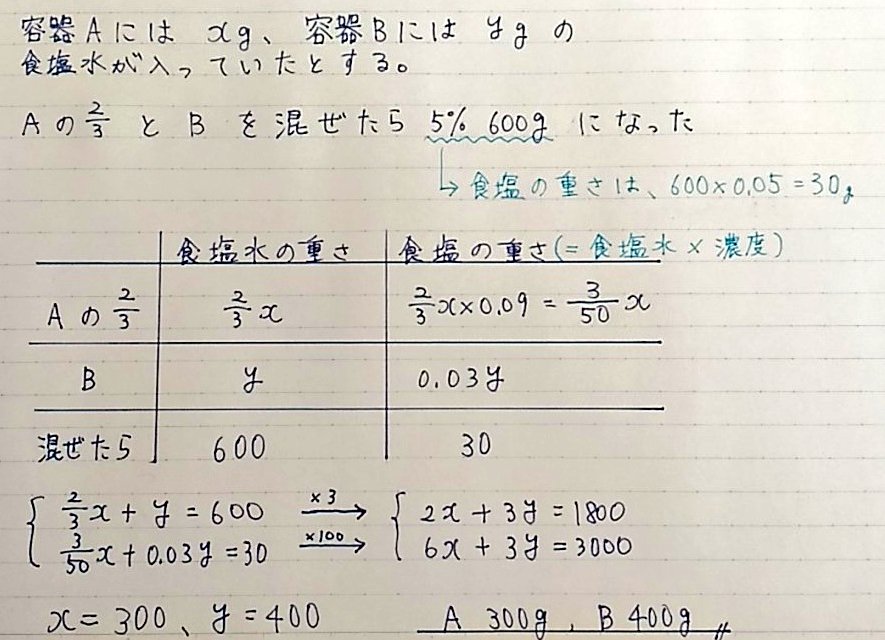 容器Aには xg、容器Bには yg の
食塩水が入っていたとする。
Aの2/3 と B を混ぜたら 5% 600g になった
↳ 食塩の重さは、600×0.05=30g
食塩水の重さ 食塩の重さ(=食塩水×濃度)
Aの2/3 2/3x 2/3x×0.09=3/50x
B y 0.03y
混ぜたら 600 30
{ 2/3x+y=600 ×3→ { 2x+3y=1800
3/50x+0.03y=30 ×100→ 6x+3y=3000
x=300、y=400 A 300g, B 400g〃